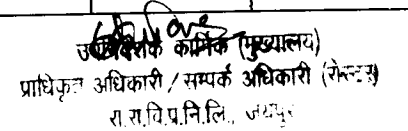 कार्मिक (मुख्यालय)
प्राधिकृत अधिकारी / सम्पर्क अधिकारी (रोस्टर)
रा.रा.वि.प्र.नि.लि., जयपुर